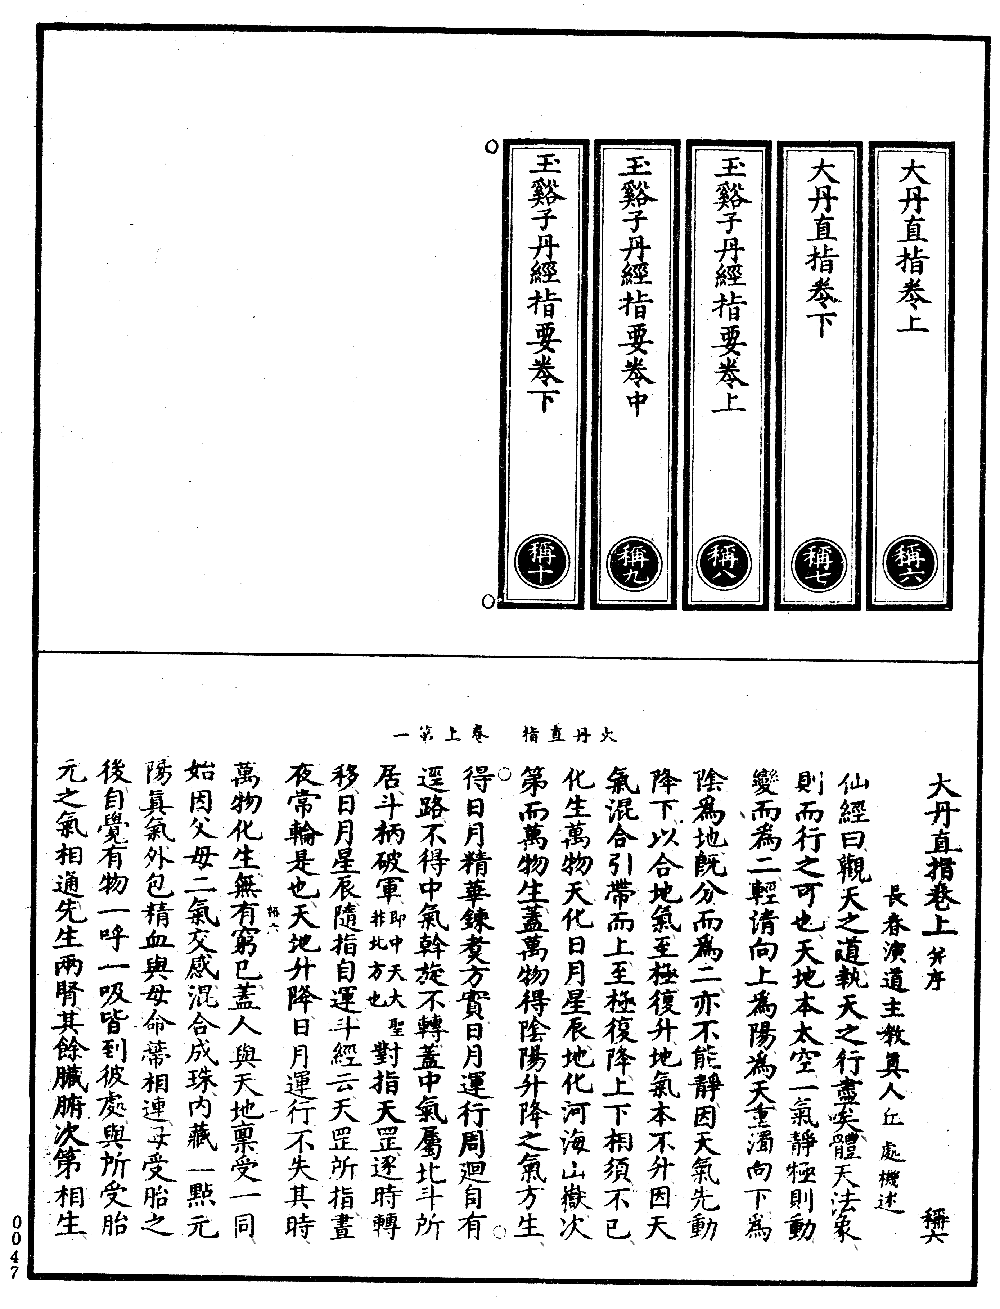 大丹直指卷上
稱六
大丹直指卷下
稱七
玉谿子丹經指要卷上
稱八
玉谿子丹經指要卷中
稱九
玉谿子丹經指要卷下
稱十
大丹直指　卷上第一
大丹直指卷上 并序　稱六
長春演道主教真人丘處機述
仙經曰觀天之道執天之行盡矣體天法象
則而行之可也天地本太空一氣靜極則動
變而為二輕清向上為陽為天重濁向下為
陰為地既分而為二亦不能靜因天氣先動
降下以合地氣至極復升地氣本不升因天
氣混合引帶而上至極復降上下相須不已
化生萬物天化日月星辰地化河海山嶽次
第而萬物生蓋萬物得陰陽升降之氣方生
得日月精華鍊煑方實日月運行周迴自有
逕路不得中氣斡旋不轉蓋中氣屬北斗所
居斗柄破軍即中天大聖非北方也對指天罡逐時轉
移日月星辰隨指自運斗經云天罡所指晝
夜常輪是也天地升降日月運行不失其時
稱六
一
萬物化生無有窮已蓋人與天地稟受一同
始因父母二氣交感混合成珠內藏一點元
陽真氣外包精血與母命蒂相連母受胎之
後自覺有物一呼一吸皆到彼處與所受胎
元之氣相通先生兩腎其餘臟腑次第相生
0047